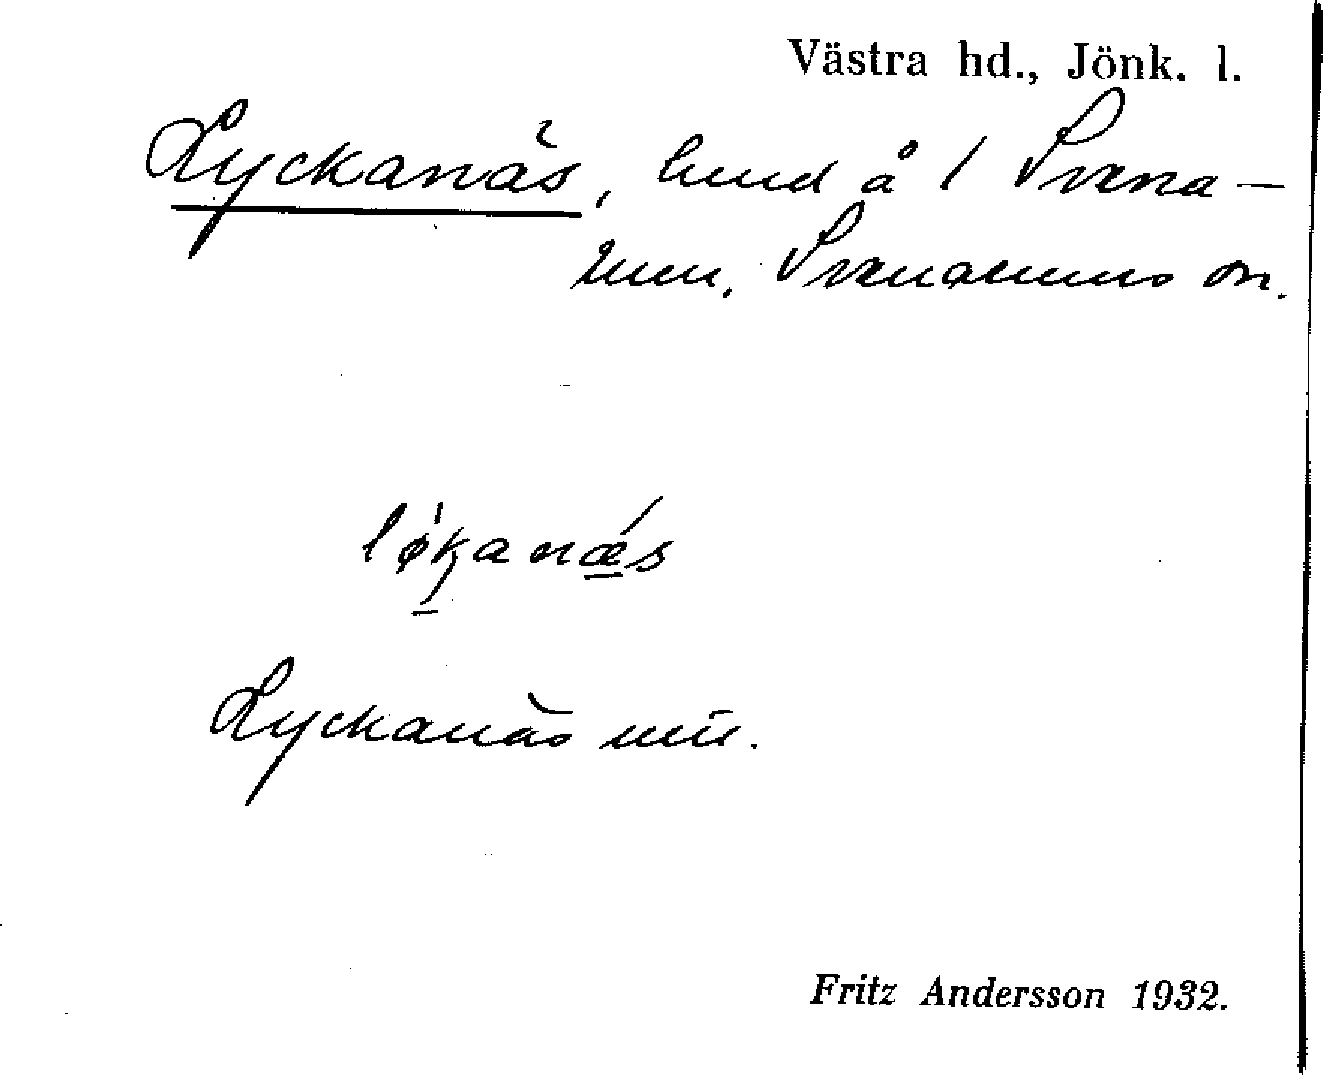 Västra hd., Jönk. l.
Lyckanäs, lund å 1 Svena-
men, Svenamens sn.
løkanǽs
Lyckanäs
Fritz Andersson 1932.